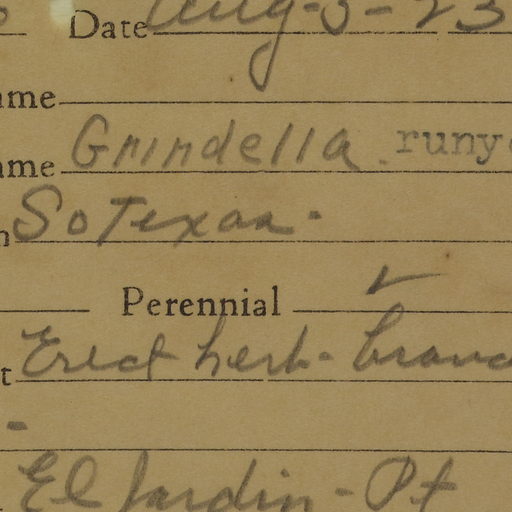 Date Aug-5-23
ame
ame Grindella. runy
n So Texas.
Perennial ✓
t Erect herb- branc
-
El Jardin - Pt